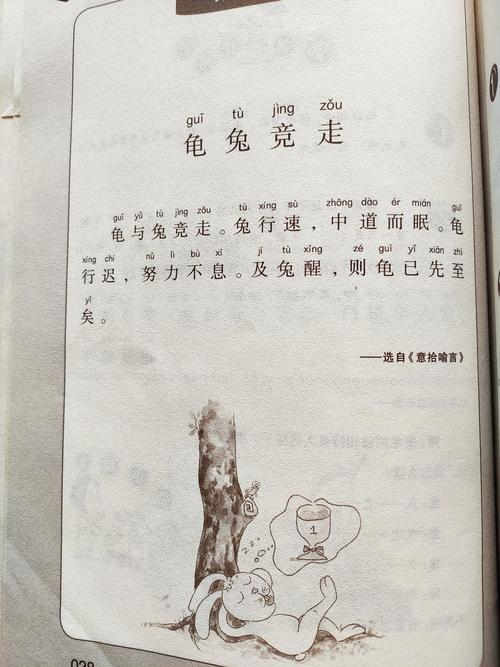 guī tù jìng zǒu
龟兔竞走
guī yǔ tù jìng zǒu tù xíng sù zhōng dào ér mián guī
龟与兔竞走。兔行速，中道而眠。龟
xíng chí nǔ lì bù xī jí tù xǐng zé guī yǐ xiān zhì
行迟，努力不息。及兔醒，则龟已先至
yǐ
矣。
——选自《意拾喻言》
1
zzz